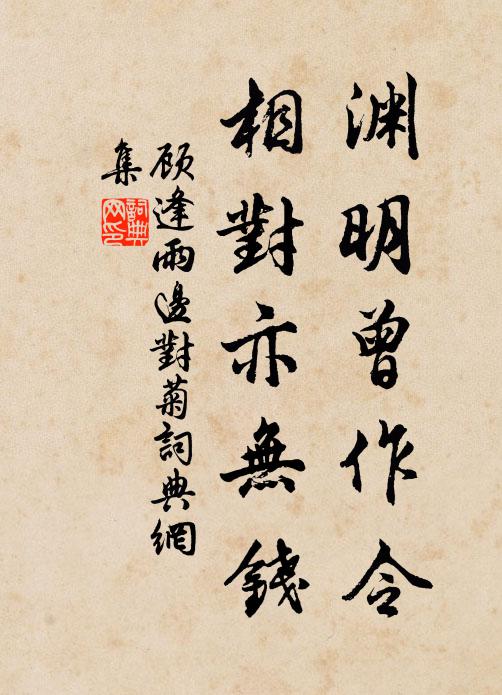 渊明曾作令
相對亦無錢
顾逢雨邊對菊詞典網
集
詞典
网印